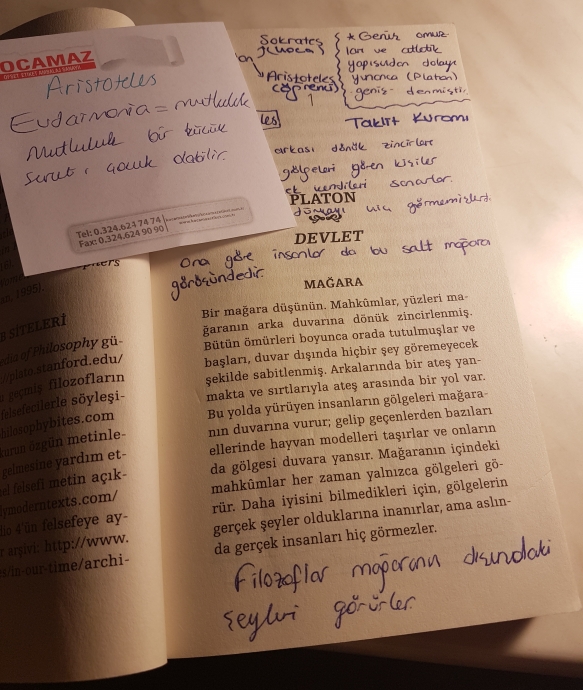 OCAMAZ
Aristoteles
Eudaimonia = mutluluk
Mutluluk bir küçük
servet, çocuk olabilir.
Tel: 0.324.624 74 74
Fax: 0.324.624 90 90
Sokrates
(Hoca)
Aristoteles
(öğrenci)
* Geniş omuz
ları ve atletik
yapısından dolayı
yunanca (Platon)
geniş denmiştir.
les
Taklit Kuramı
arkası dönük zincirlere
gölgeleri gören kişiler
kendileri sanarlar.
PLATON
dünyayı hiç görmemişlerdi.
DEVLET
Ona göre insanlar da bu salt mağara
görüşündedir.
MAĞARA
Bir mağara düşünün. Mahkûmlar, yüzleri ma-
ğaranın arka duvarına dönük zincirlenmiş.
Bütün ömürleri boyunca orada tutulmuşlar ve
başları, duvar dışında hiçbir şey göremeyecek
şekilde sabitlenmiş. Arkalarında bir ateş yan-
makta ve sırtlarıyla ateş arasında bir yol var.
Bu yolda yürüyen insanların gölgeleri mağara-
nın duvarına vurur; gelip geçenlerden bazıları
ellerinde hayvan modelleri taşırlar ve onların
da gölgesi duvara yansır. Mağaranın içindeki
mahkûmlar her zaman yalnızca gölgeleri gö-
rür. Daha iyisini bilmedikleri için, gölgelerin
gerçek şeyler olduklarına inanırlar, ama aslın-
da gerçek insanları hiç görmezler.
Filozoflar mağaranın dışındaki
şeyleri görürler.
an, 1995).
SİTELERİ
of Philosophy gü-
plato.stanford.edu/
geçmiş filozofların
felsefecilerle söyleşi-
hilosophybites.com
özgün metinle-
gelmesine yardım et-
felsefi metin açık-
ymoderntexts.com/
4'ün felsefeye ay-
arşivi: http://www.
es/in-our-time/archi-